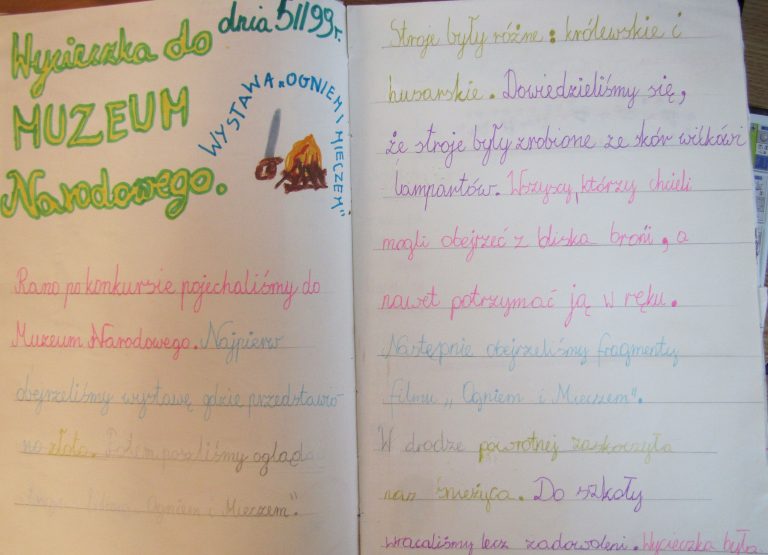 Wycieczka do
MUZEUM
Narodowego.
dnia 5 II 99 r.
WYSTAWA „OGNIEM I MIECZEM”
Rano po konkursie pojechaliśmy do
Muzeum Narodowego. Najpierw
obejrzeliśmy wystawę gdzie przedstawio-
no złoto. Potem poszliśmy oglądać
filmu „Ogniem i Mieczem”.
Stroje były różne: królewskie i
husarskie. Dowiedzieliśmy się,
że stroje były zrobione ze skór wilków i
lampartów. Wszyscy, którzy chcieli
mogli obejrzeć z bliska broń, a
nawet potrzymać ją w ręku.
Następnie obejrzeliśmy fragmenty
filmu „Ogniem i Mieczem”.
W drodze powrotnej zaskoczyła
nas śnieżyca. Do szkoły
wracaliśmy lecz zadowoleni. Wycieczka była